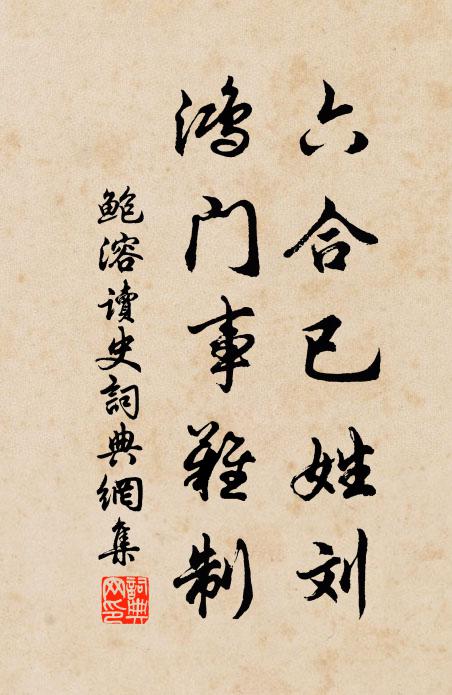 六合已姓刘
鸿门事难制
鲍溶读史詞典網集
詞典网印